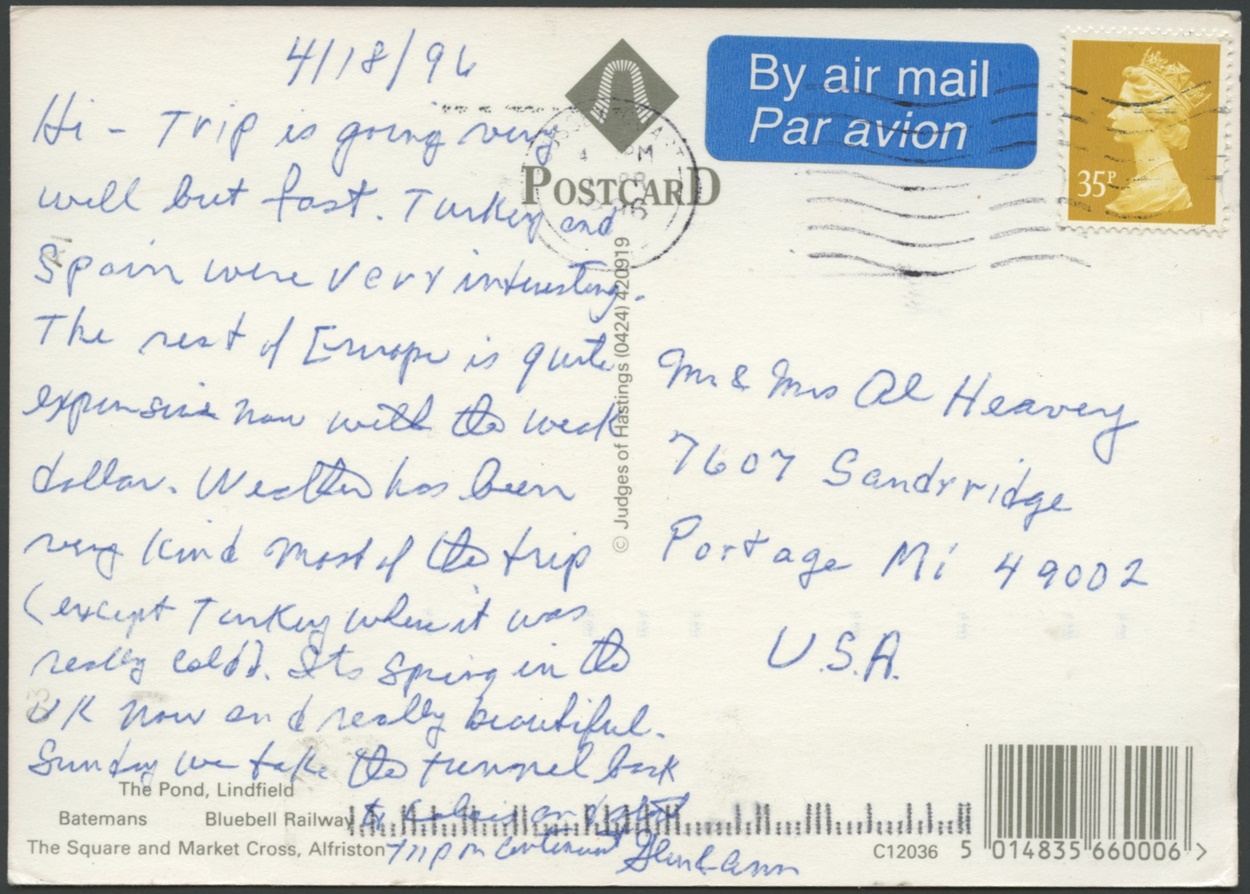 4/18/96
Hi - Trip is going very
well but fast. Turkey and
Spain were very interesting.
The rest of Europe is quite
expensive now with the weak
dollar. Weather has been
very kind most of the trip
(except Turkey when it was
really cold). Its spring in the
UK now and really beautiful.
Sunday we take the tunnel back
to Calais and
trip on continent
The Pond, Lindfield
Batemans Bluebell Railway
The Square and Market Cross, Alfriston
POSTCARD
© Judges of Hastings (0424) 420919
By air mail
Par avion
35P
Mr & Mrs Al Heavey
7607 Sandyridge
Portage Mi 49002
U.S.A.
C12036 5 014835 660006 >